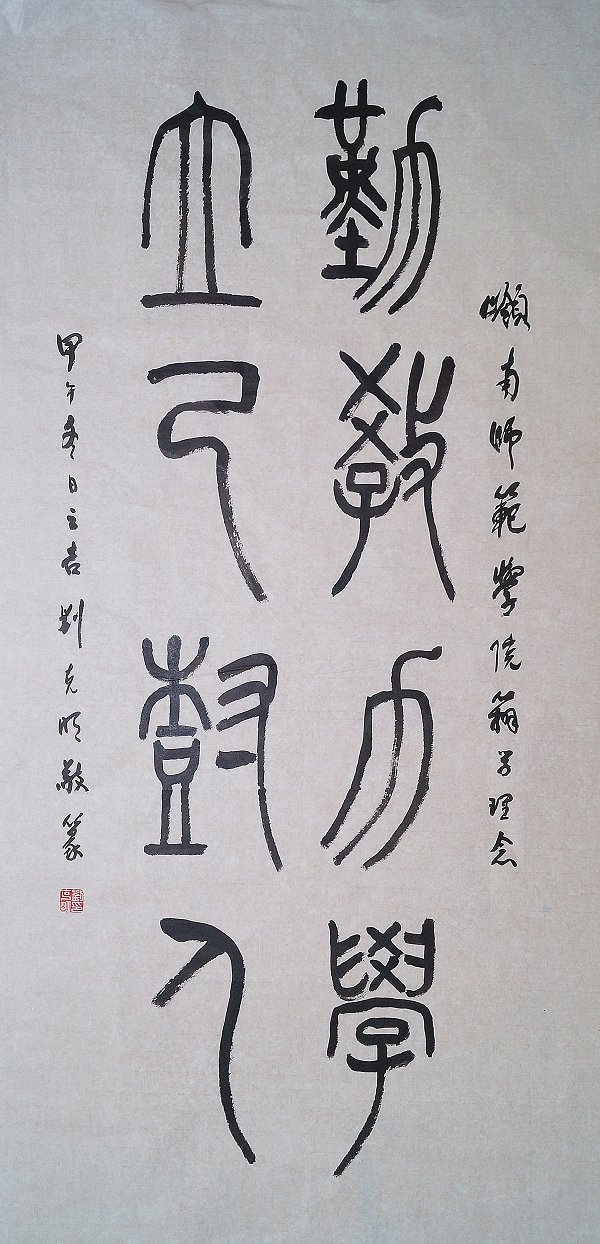 嶺南師範學院辦学理念
勤教力學
立己樹人
甲午冬日之吉劉克明敬篆